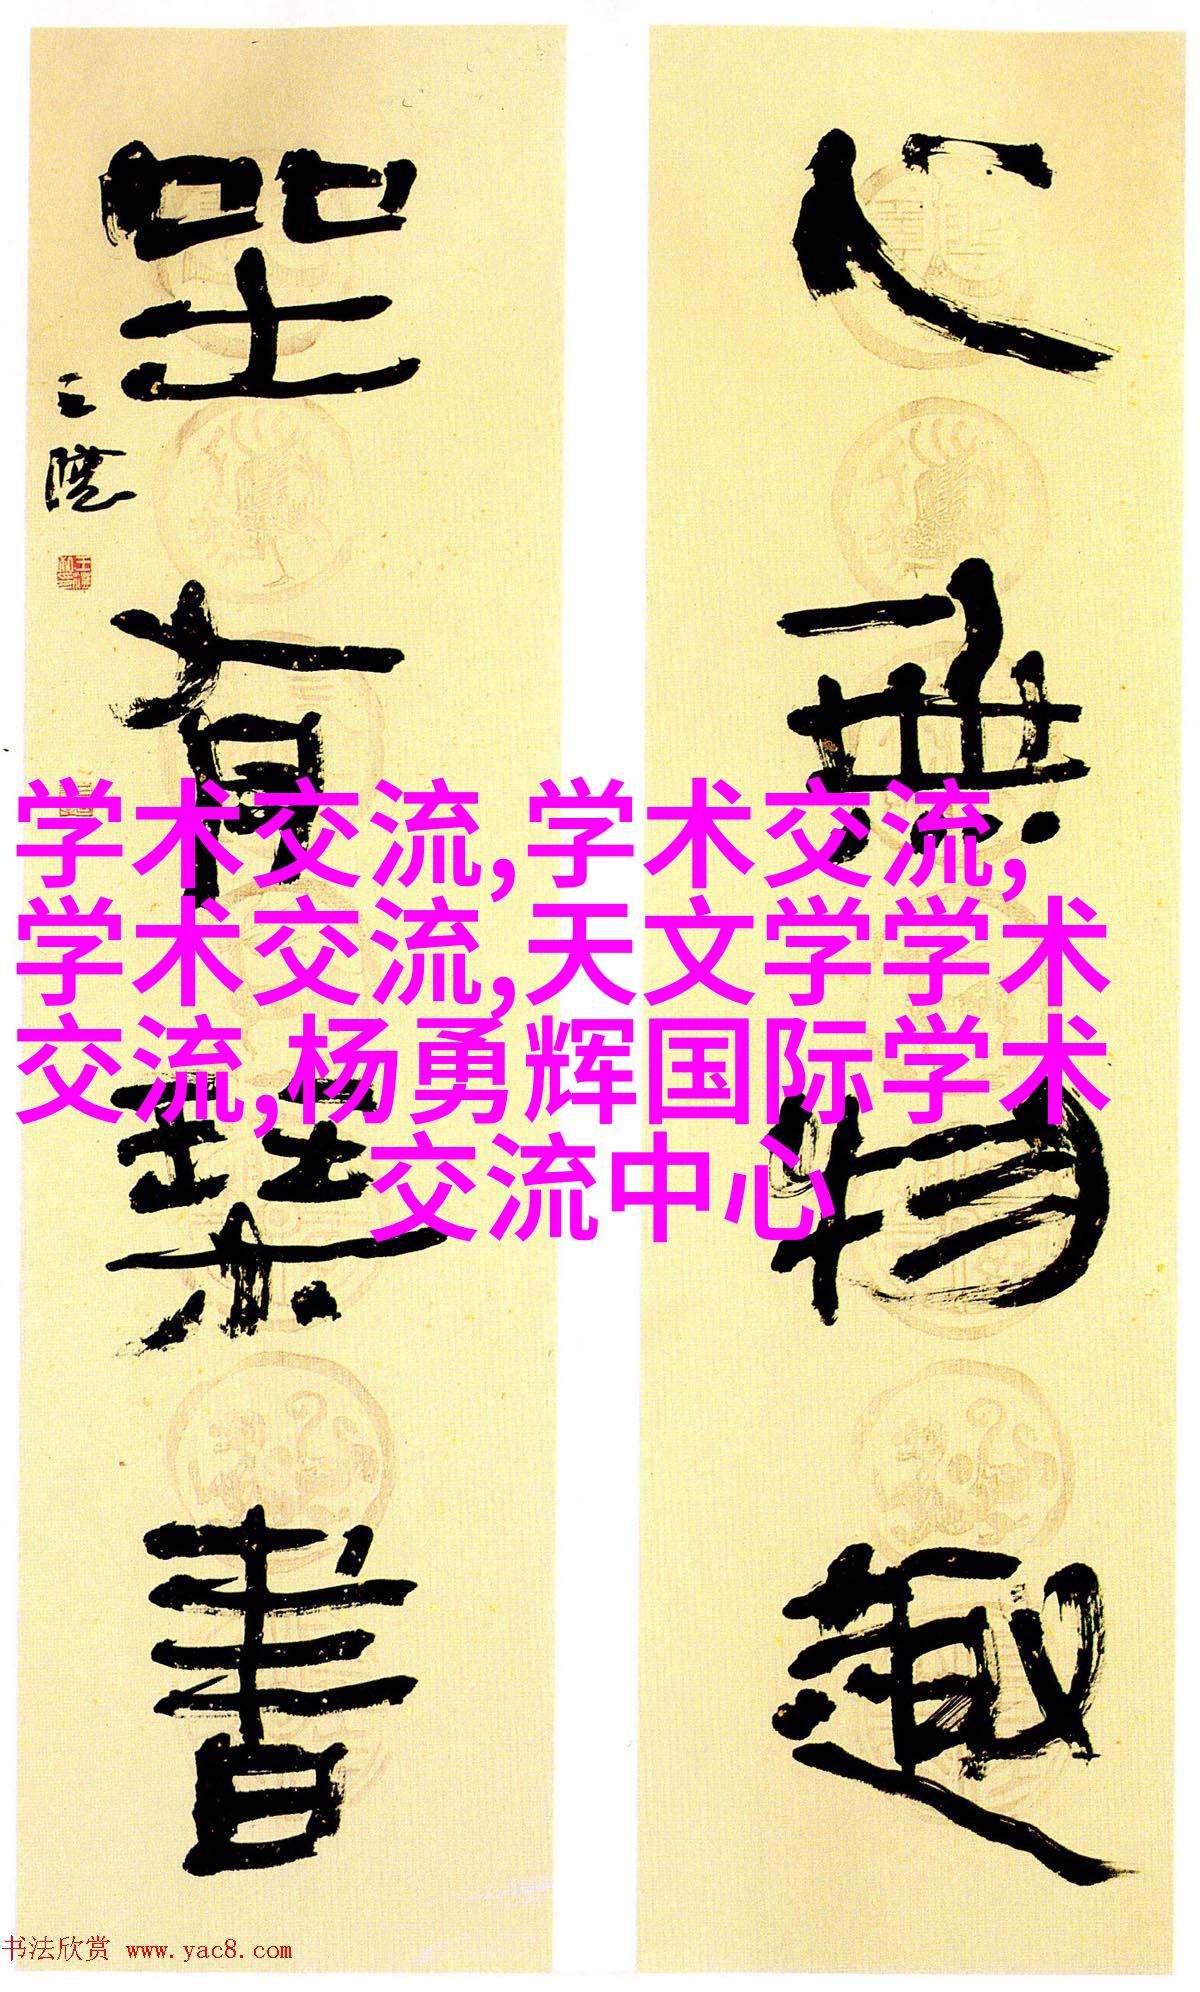 心無物趣
坐有琹書
王鏞
学术交流,学术交流,
学术交流,天文学学术
交流,杨勇辉国际学术
交流中心
书法欣赏 www.yac8.com